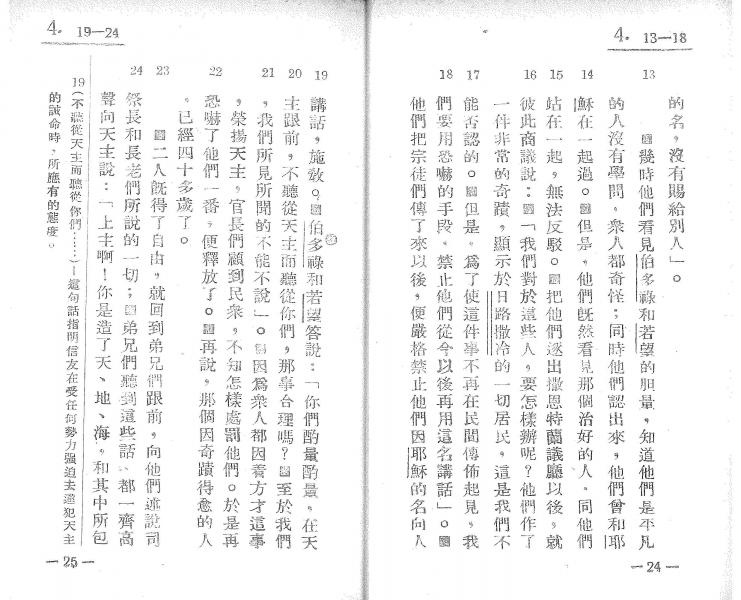 4. 13—18
的名，沒有賜給別人」。
13 幾時他們看見伯多祿和若望的胆量，知道他們是平凡
的人沒有學問。衆人都奇怪；同時他們認出來，他們曾和耶
14 穌在一起過。但是，他們旣然看見那個治好的人，同他們
15 站在一起，無法反駁。把他們逐出撒恩特蘭議廳以後，就
16 彼此商議說：「我們對於這些人，要怎樣辦呢？他們作了
一件非常的奇蹟，顯示於日路撒冷的一切居民，這是我們不
17 能否認的。但是，爲了使這件事不再在民間傳佈起見，我
18 們要用恐嚇的手段，禁止他們從今以後再用這名講話」。
他們把宗徒們傳了來以後，便嚴格禁止他們因耶穌的名向人
—24—
4. 19—24
19 講話，施敎。伯多祿和若望答說：「你們酌量酌量，在天
20 主跟前，不聽從天主而聽從你們，那事合理嗎？至於我們
21 ，我們所見所聞的不能不說」。因爲衆人都因着方才這事
，榮揚天主，官長們顧到民衆，不知怎樣處罰他們。於是再
22 恐嚇了他們一番，便釋放了。再說，那個因奇蹟得愈的人
，已經四十多歲了。
23 二人旣得了自由，就回到弟兄們跟前，向他們述說司
24 祭長和長老們所說的一切；弟兄們聽到這些話、都一齊高
聲向天主說：「上主啊！你是造了天、地、海，和其中所包
19（不聽從天主而聽從你們……）—這句話指明信友在受任何勢力强迫去違犯天主
的誡命時，所應有的態度。
—25—